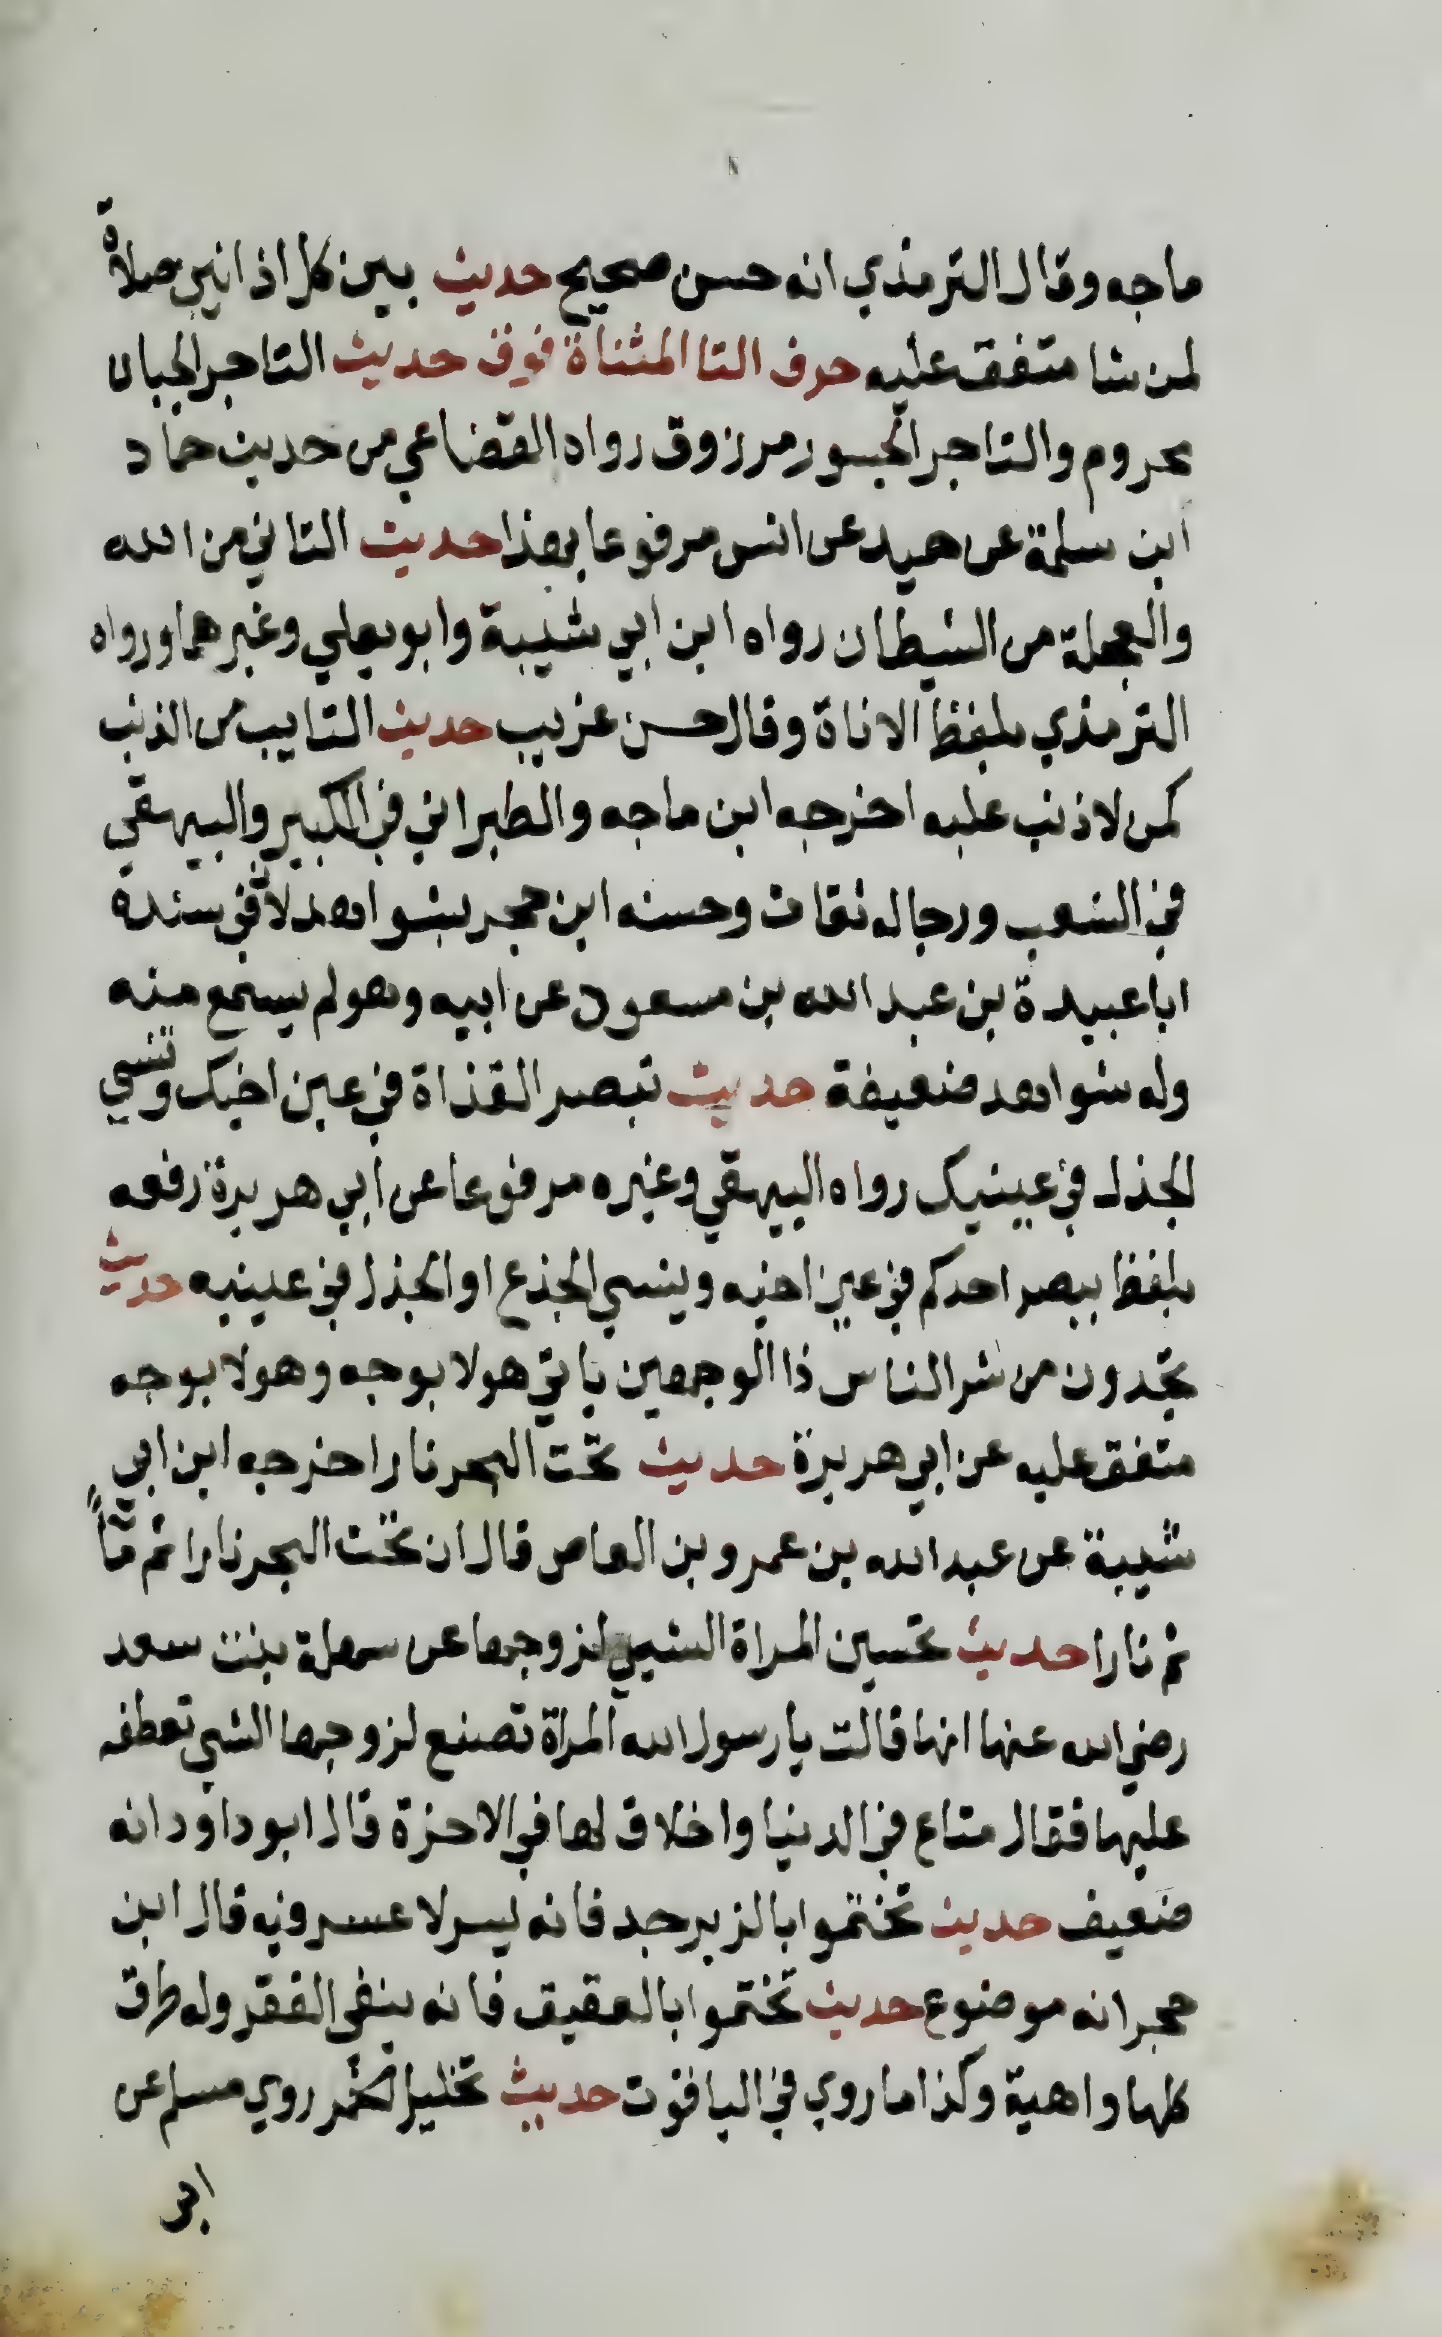 ماجه وقال الترمذي انه حسن صحيح حديث بين كل اذانين صلاة
لمن شا متفق عليه حرف التا المثناة فوق حديث التاجر الجبان
محروم والتاجر الجسور مرزوق رواه القضاعي من حديث حماد
ابن سلمة عن حميد عن انس مرفوعا بهذا حديث التاني من الله
والعجلة من الشيطان رواه ابن ابي شيبة وابو يعلي وغيرهما ورواه
الترمذي بلفظ الاناة وقال حسن غريب حديث التايب من الذنب
كمن لا ذنب عليه اخرجه ابن ماجه والطبراني في الكبير والبيهقي
في الشعب ورجاله ثقات وحسنه ابن حجر بشواهد لان في سنده
ابا عبيدة بن عبد الله بن مسعود عن ابيه وهو لم يسمع منه
وله شواهد ضعيفة حديث تبصر القذاة في عين اخيك وتنسي
الجذل في عينيك رواه البيهقي وغيره مرفوعا عن ابي هريرة رفعه
بلفظ يبصر احدكم في عين اخيه وينسي الجذع او الجذل في عينيه حديث
تجدون من شر الناس ذا الوجهين ياتي هولا بوجه وهولا بوجه
متفق عليه عن ابي هريرة حديث تحت البحر نارا اخرجه ابن ابي
شيبة عن عبد الله بن عمرو بن العاص قال ان تحت البحر نارا ثم مآً
ثم نارا حديث تحسين المراة الشي لزوجها عن سهلة بنت سعد
رضي الله عنها انها قالت يا رسول الله المراة تصنع لزوجها الشي تعطفه
عليها فقال متاع في الدنيا واخلاق لها في الاخرة قال ابو داود انه
ضعيف حديث تختموا بالزبرجد فانه يسر لا عسر فيه قال ابن
حجر انه موضوع حديث تختموا بالعقيق فانه ينفي الفقر وله طرق
كلها واهية وكذا ما روي في الياقوت حديث تخليل الخمر روي مسلم عن